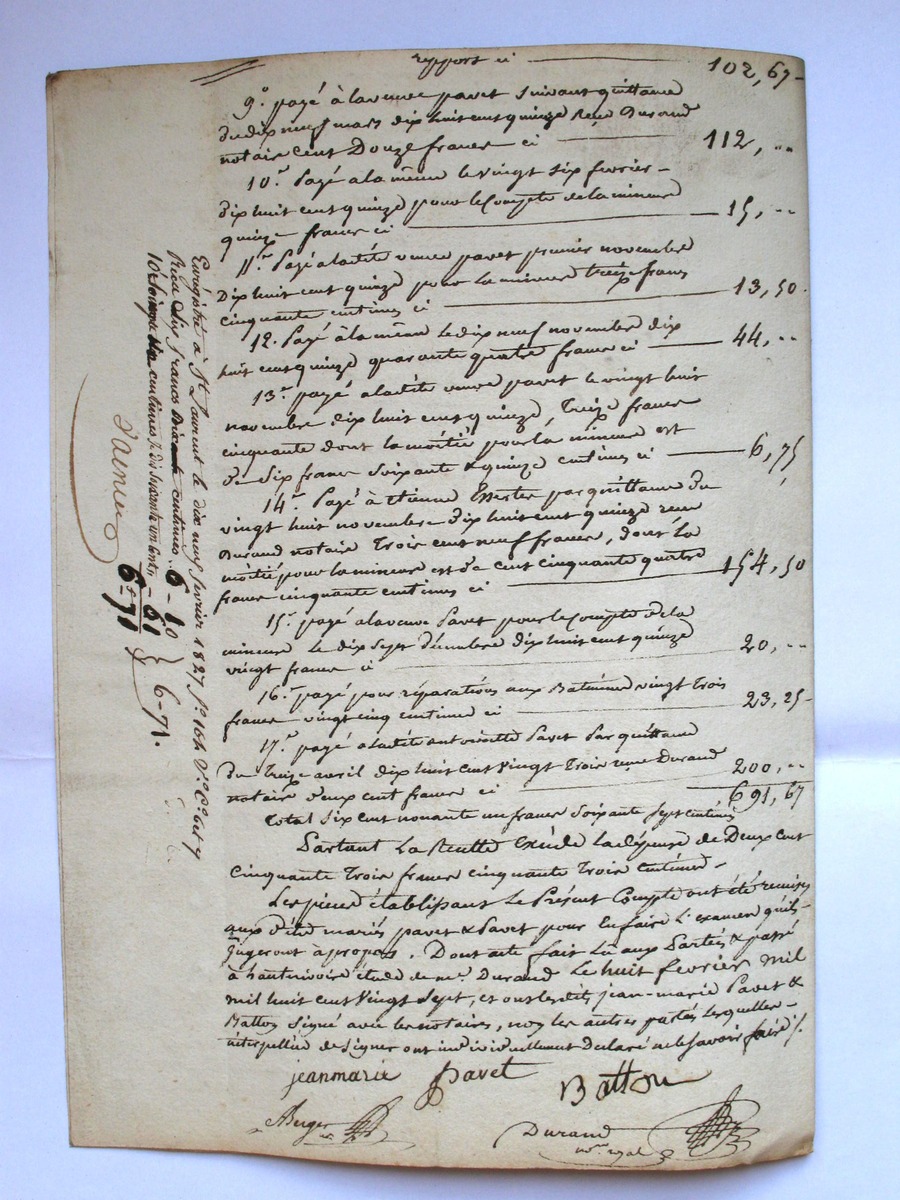 report ci 102,67
9.° payé à la veuve pavet suivant quittance
du dix neuf mars dix huit cent quinze reçue Durand
notaire cent Douze francs ci 112, ..
10.° Payé a la même le vingt six fevrier
dix huit cent quinze pour le Compte de la mineure
quinze francs ci 15, ..
11.° Payé a ladite veuve pavet premier novembre
Dix huit cent quinze pour la mineure treize francs
cinquante centimes ci 13,50
12. Payé à la même le dix neuf novembre dix
huit cent quinze quarante quatre francs ci 44, ..
13.° payé a ladite veuve pavet le vingt huit
novembre dix huit cent quinze, treize francs
cinquante dont la moitié pour la mineure est
de six francs soixante & quinze centimes ci 6,75
14.° Payé à etienne par quittance du
vingt huit novembre dix huit cent quinze reçue
Durand notaire Trois cent neuf francs, dont la
moitié pour la mineure est de cent cinquante quatre
francs cinquante centimes ci 154,50
15.° payé a la veuve Pavet pour le Compte de la
mineure le dix sept décembre dix huit cent quinze
vingt francs ci 20, ..
16.° payé pour réparations aux Batimens vingt trois
francs vingt cinq centimes ci 23,25
17.° payé a ladite antoinette Pavet Par quittance
du treize avril dix huit cent vingt Trois reçue Durand
notaire deux cent francs ci 200, ..
Total six cent nonante un francs soixante sept centimes 691,67
Partant La Recette Excède la dépense de Deux cent
cinquante trois francs cinquante trois centimes
Les pièces établissant le Présent Compte ont été remises
aux dits mariés pavet & Pavet pour En faire l'examen qu'ils
Jugeront à propos. Dont acte fait lu aux Parties & passé
à hauterivoire étude de me. Durand Le huit fevrier mil
mil huit cent vingt sept, et ont lesdits jean-marie Pavet &
Batton signé avec les notaires, non les autres parties lesquelles
interpellées de signer ont individuellement declaré ne le savoir faire /.
jeanmarie pavet
Batton
Berger
Durand
nre. royal
Enregistré à St. Laurent le dix neuf fevrier 1827 f.° 164 v.° C.
Reçu Six francs Dix centimes. 6-10
10e Soixante un centimes 61
6-71
6-71.